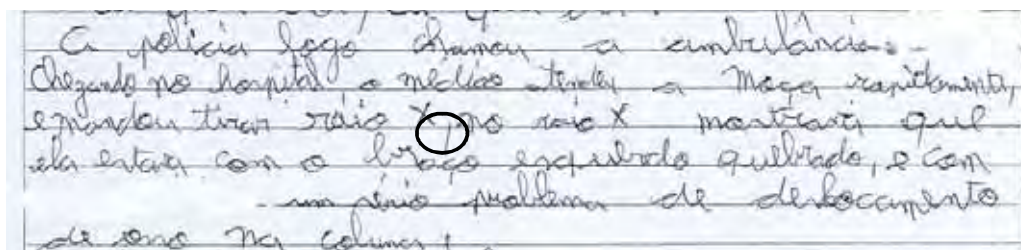 A policia logo chamou a ambulância.
Chegando no hospital o médico atendeu a moça rapidamente,
e mandou tirar ráio X, no raio X mostrava que
ela estava com o braço esquerdo quebrado, e com
um sério problema de deslocamento
de osso na coluna.